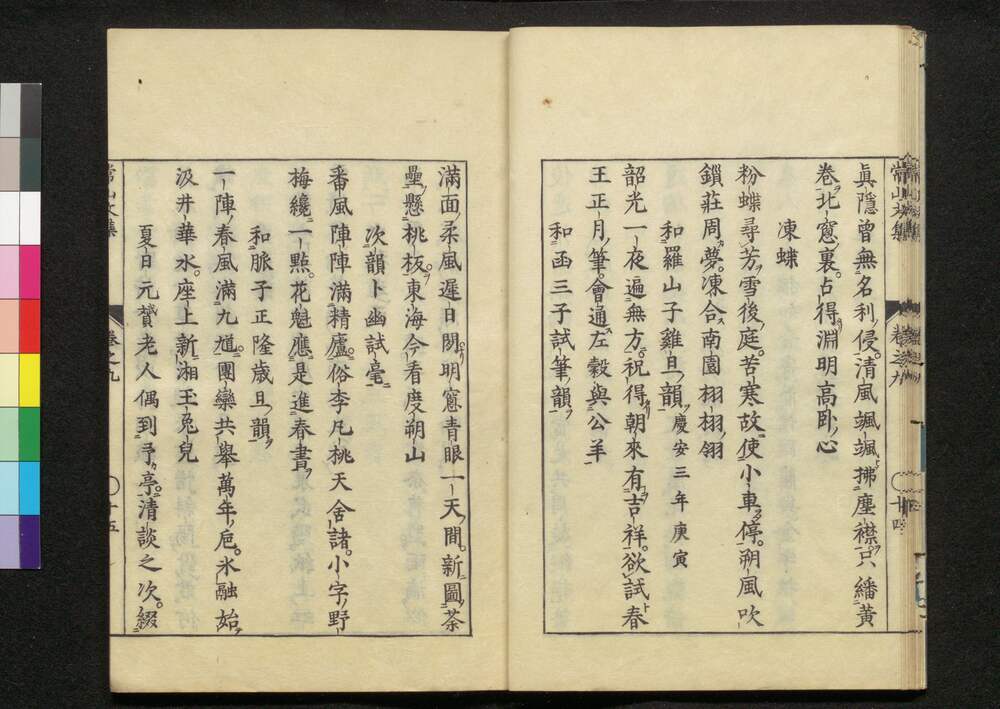 眞隱曾無名利侵清風颯颯拂塵襟只繙黃
卷北窓裏占得淵明高臥心
凍蝶
粉蝶尋芳雪後庭苦寒故使小車停朔風吹
鎖莊周夢凍合南園栩栩翎
和羅山子雞旦韻 慶安三年庚寅
韶光一夜遍無方祝得朝來有吉祥欲試春
王正月筆會通左穀與公羊
和函三子試筆韻
滿面柔風遲日閑明窓青眼一天間新圖荼
壘懸桃板東海今看度朔山
次韻卜幽試毫
番風陣陣滿精廬俗李凡桃天舍諸小字野
梅纔一點花魁應是進春書
和脈子正隆歲旦韻
一陣春風滿九逵團欒共舉萬年巵氷融始
汲井華水座上新湘玉兔兒
夏日元贇老人偶到予亭清談之次綴
常山文集
卷之九
十五
常山文集
卷之九